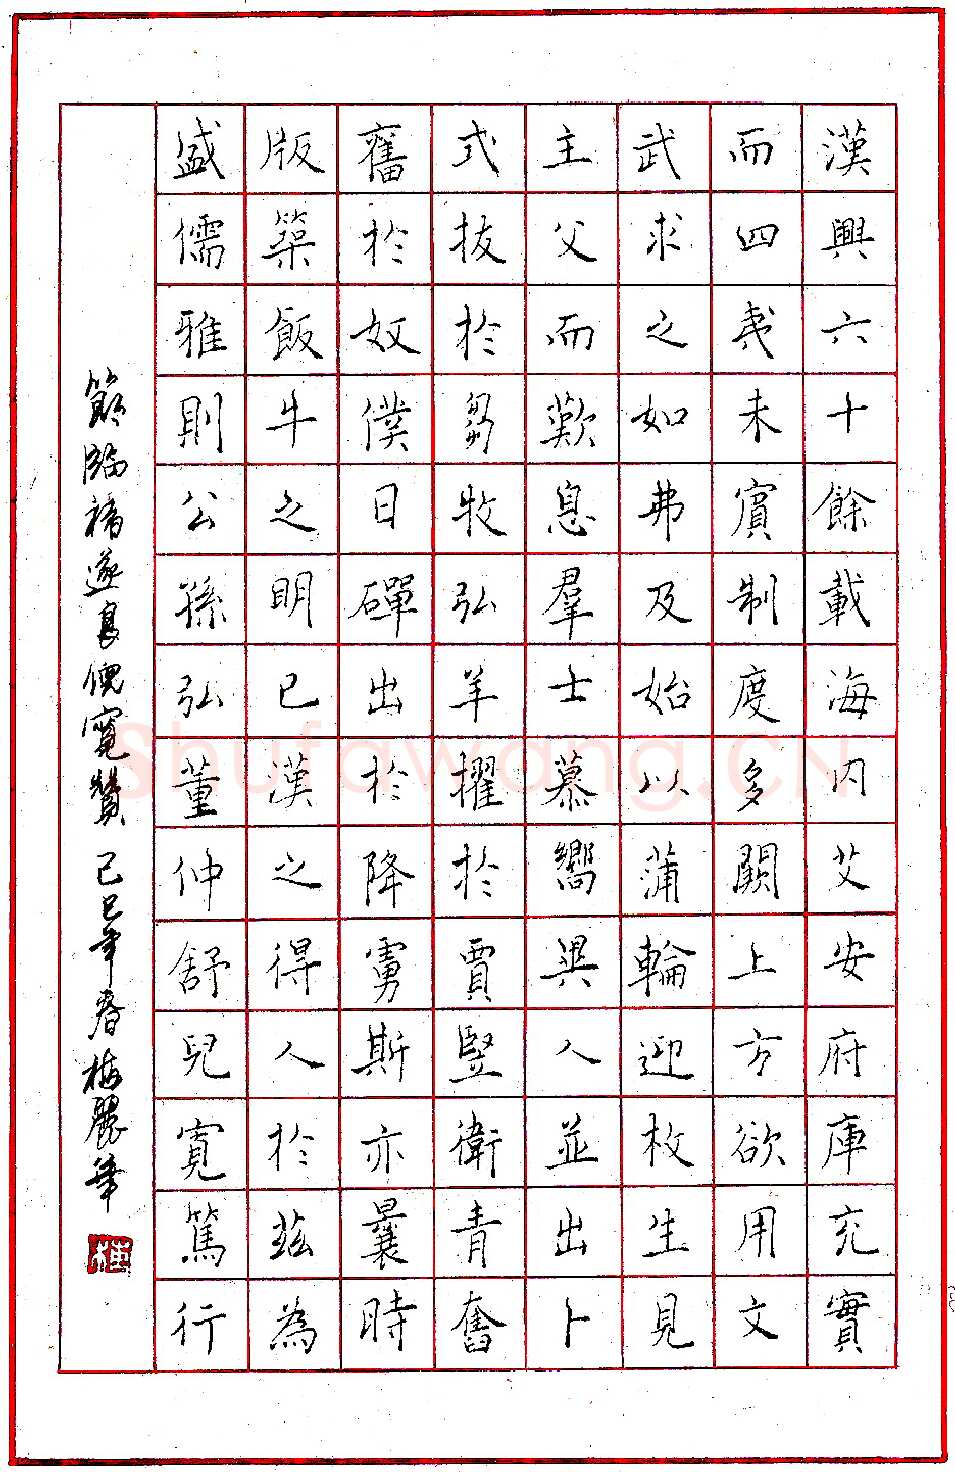 漢興六十餘載海內艾安府庫充實
而四夷未賓制度多闕上方欲用文
武求之如弗及始以蒲輪迎枚生見
主父而歎息羣士慕嚮異人並出卜
式拔於芻牧弘羊擢於賈豎衛青奮
舊於奴僕日磾出於降虜斯亦曩時
版築飯牛之明已漢之得人於茲為
盛儒雅則公孫弘董仲舒兒寬篤行
節臨褚遂良倪寬贊 己巳年春梅麗華
梅
Shufawang.CN